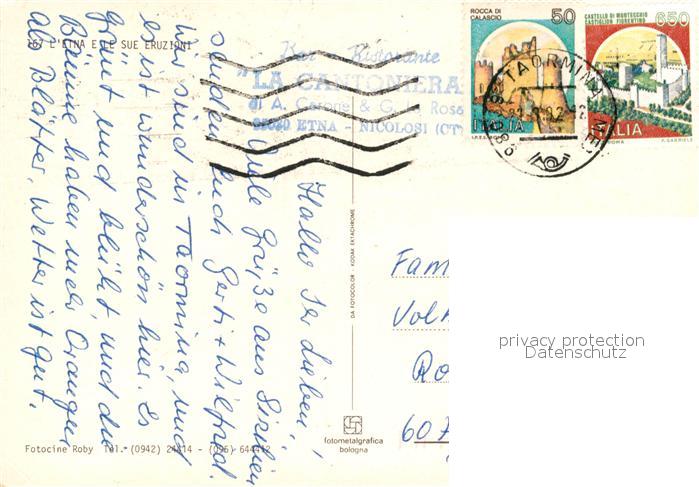 167 L'ETNA E LE SUE ERUZIONI
Bar Ristorante
"LA CANTONIERA
di A. Carone & G. Lo Rosa
95030 ETNA - NICOLOSI (CT)
ROCCA DI
CALASCIO
50
ITALIA
CASTELLO DI MONTECCHIO
CASTIGLION FIORENTINO
650
ITALIA
ROMA
TAORMINA
Hallo Ihr Lieben!
Viele Grüße aus Sizilien
senden Euch Gerti + Wilfried.
Wir sind in Taormina, und
es ist wunderschön hier. Es
grünt und blüht, und die
Bäume haben mehr Orangen
als Blätter. Wetter ist gut.
DA FOTOCOLOR - KODAK EKTACHROME
Fam
Vol
Ro
607
privacy protection
Datenschutz
fotometalgrafica
bologna
Fotocine Roby Tel. (0942) 24414 - (095) 644412